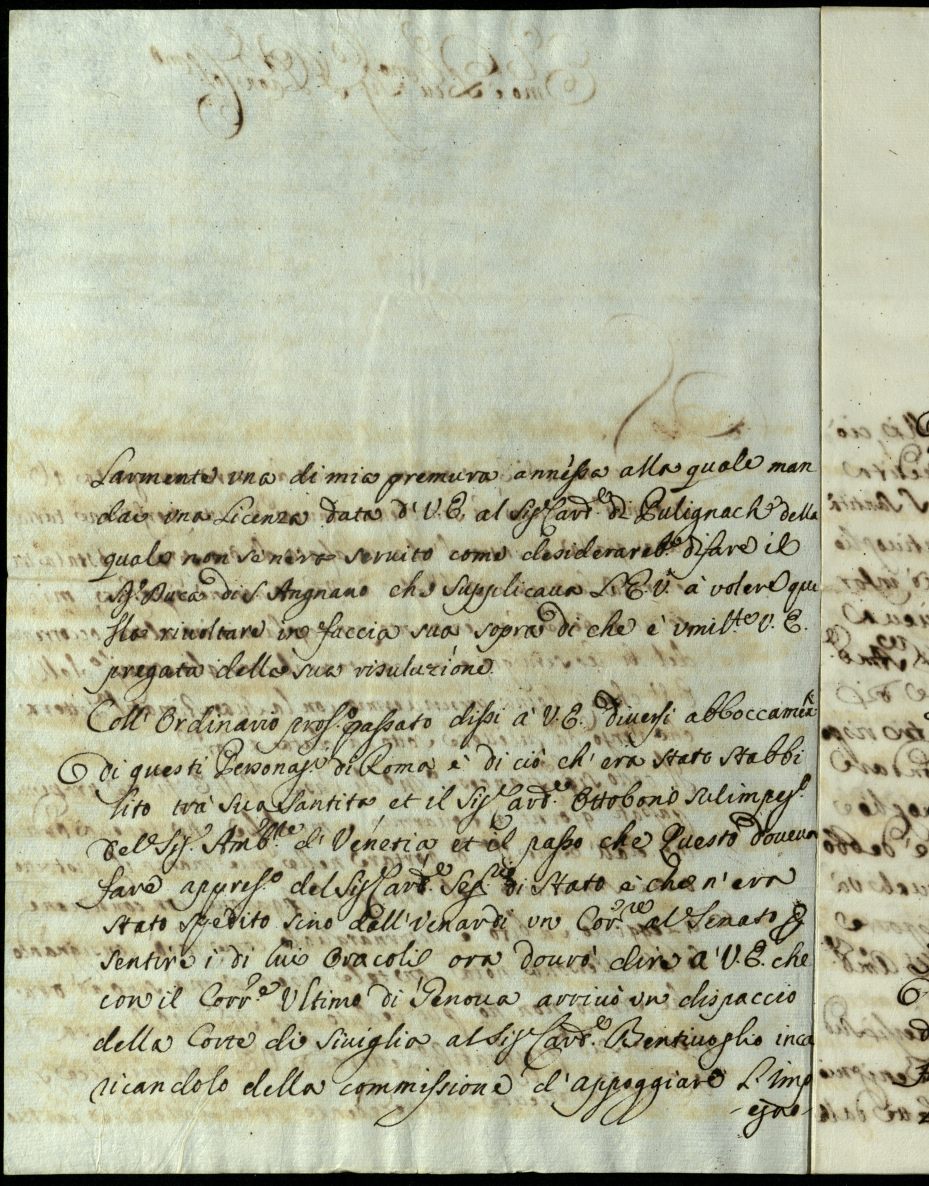 larmente una di mia premura annessa alla quale man
dai una Licenza data d' V. E. al Sig.r Card.le di Pulignach della
quale non se n'era servito come desiderareb.e di fare il
Sig.r Duca di S. Angnano che supplicava L' E. V. à volere que
sta rivoltare in faccia sua sopra di che è umil.te V. E.
pregata della sua risuluzione.
Coll' Ordinario pros.o passato dissi à V. E. diversi abboccamti
di questi Personag. di Roma è di ciò ch' era stato stabbi
lito trà sua Santità et il Sig.r Card.le Ottobono sul impeg.
del Sig.r Amb.re di Venetia et il passo che Questo doveva
fare appres.o del Sig.r Card.le Seg.rio di Stato è che n' era
stato spedito sino dall' Venardi un Cor.re al Senato p
sentire i di lui Oracoli ora dourò dire à V. E. che
con il Corr.e Ultimo di Genova arrivò un dispaccio
della Corte di Siviglia al Sig.r Card.le Bentivoglio inca
ricandolo della commissione d' appoggiare L' imp
egno